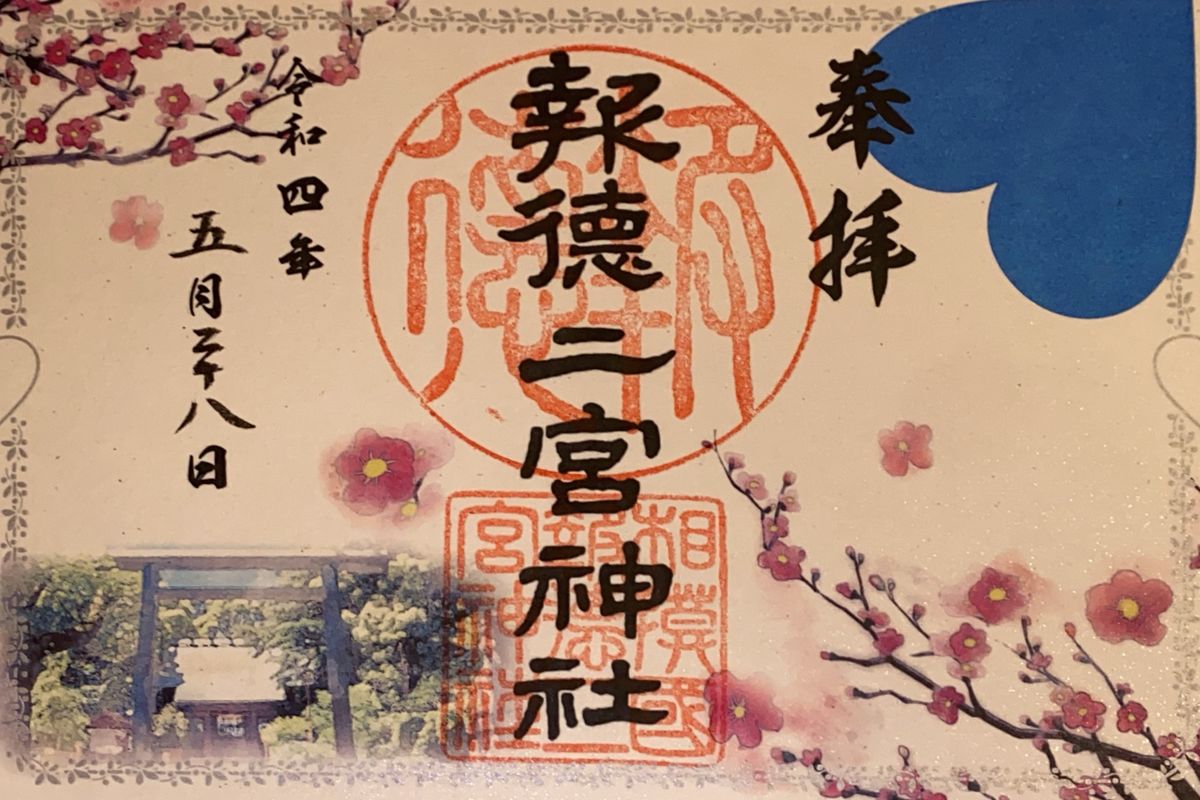 奉拝
報徳二宮神社
報徳
相模國
報徳二
宮神社
令和四年
五月二十八日